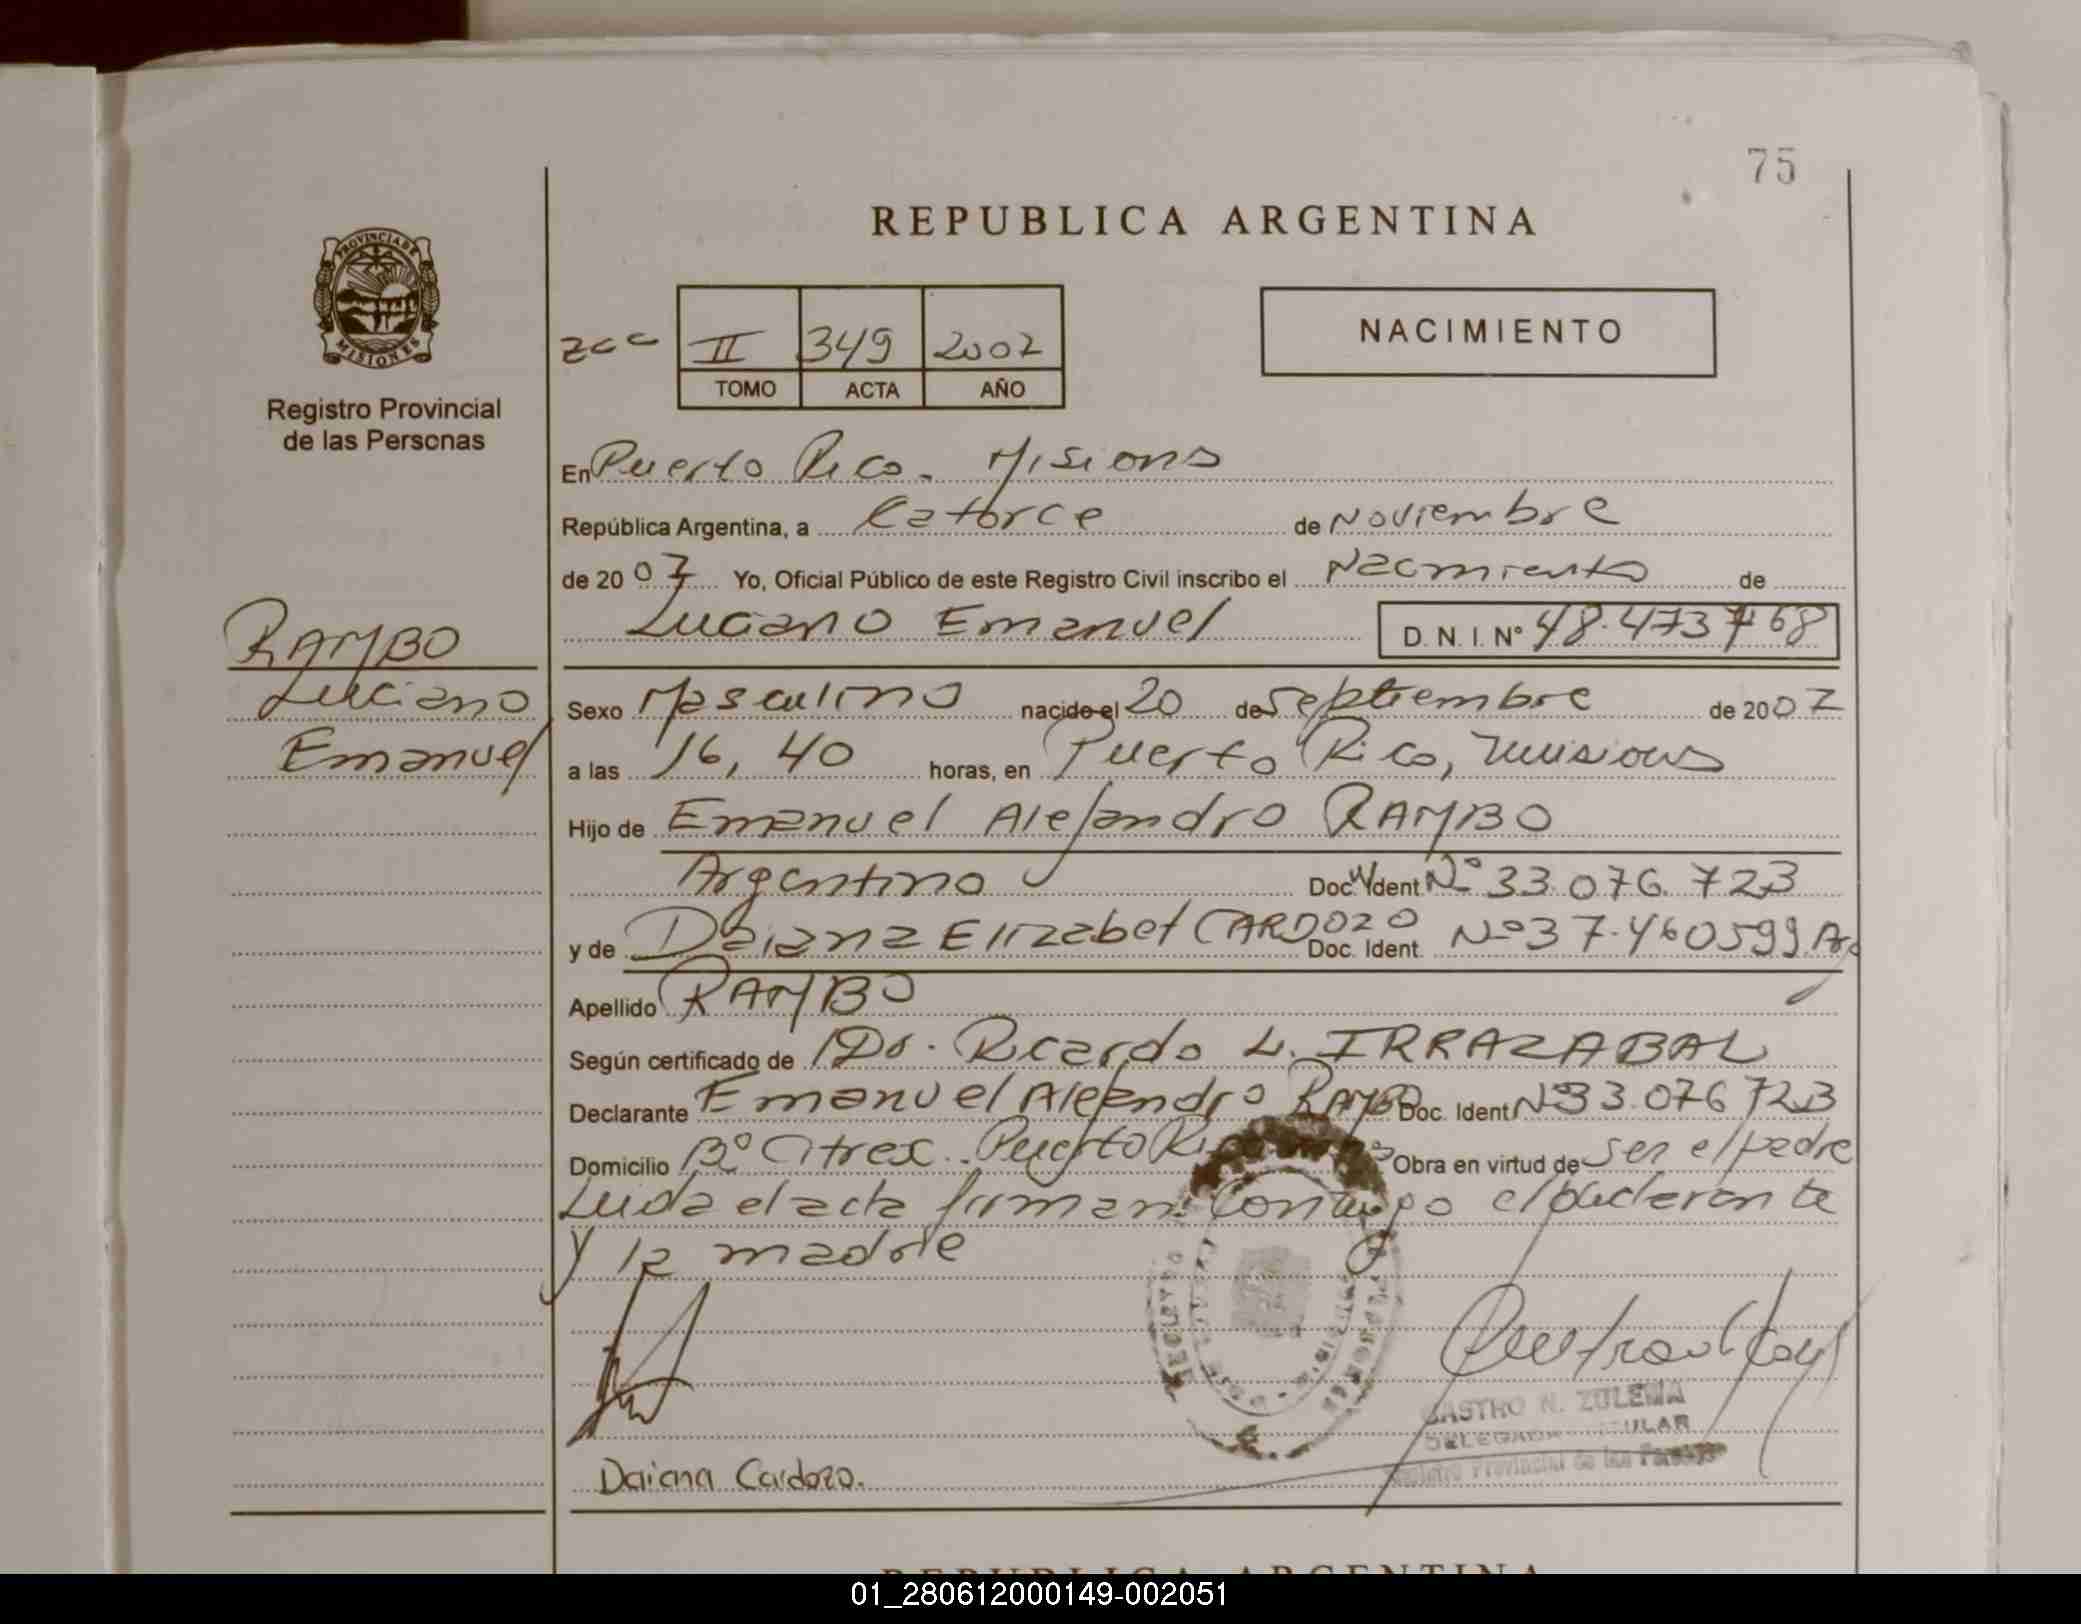 75
REPUBLICA ARGENTINA
PROVINCIA DE
MISIONES
Registro Provincial
de las Personas
II 349 2007
TOMO ACTA AÑO
NACIMIENTO
En Puerto Rico. Misiones
República Argentina, a Catorce de Noviembre
de 20 07 Yo, Oficial Público de este Registro Civil inscribo el Nacimiento de
Luciano Emanuel D. N. I. Nº 48.473768
RAMBO
Luciano
Emanuel
Sexo Masculino nacido el 20 de Septiembre de 2007
a las 16,40 horas, en Puerto Rico, Misiones
Hijo de Emanuel Alejandro RAMBO
Argentino Doc. Ident Nº 33.076.723
y de Daiana Elizabet CARDOZO Doc. Ident. Nº 37.460599. Arg
Apellido RAMBO
Según certificado de Dr. Ricardo L. IRRAZABAL
Declarante Emanuel Alejandro RAMBO Doc. Ident Nº 33.076723
Domicilio Bº Citrex. Puerto Rico Obra en virtud de ser el padre
Leida el acta firman conmigo el declarante
y la madre
CASTRO N. ZULEMA
DELEGADA TITULAR
Registro Provincial de las Personas
Daiana Cardozo.
REPUBLICA ARGENTINA
01_280612000149-002051